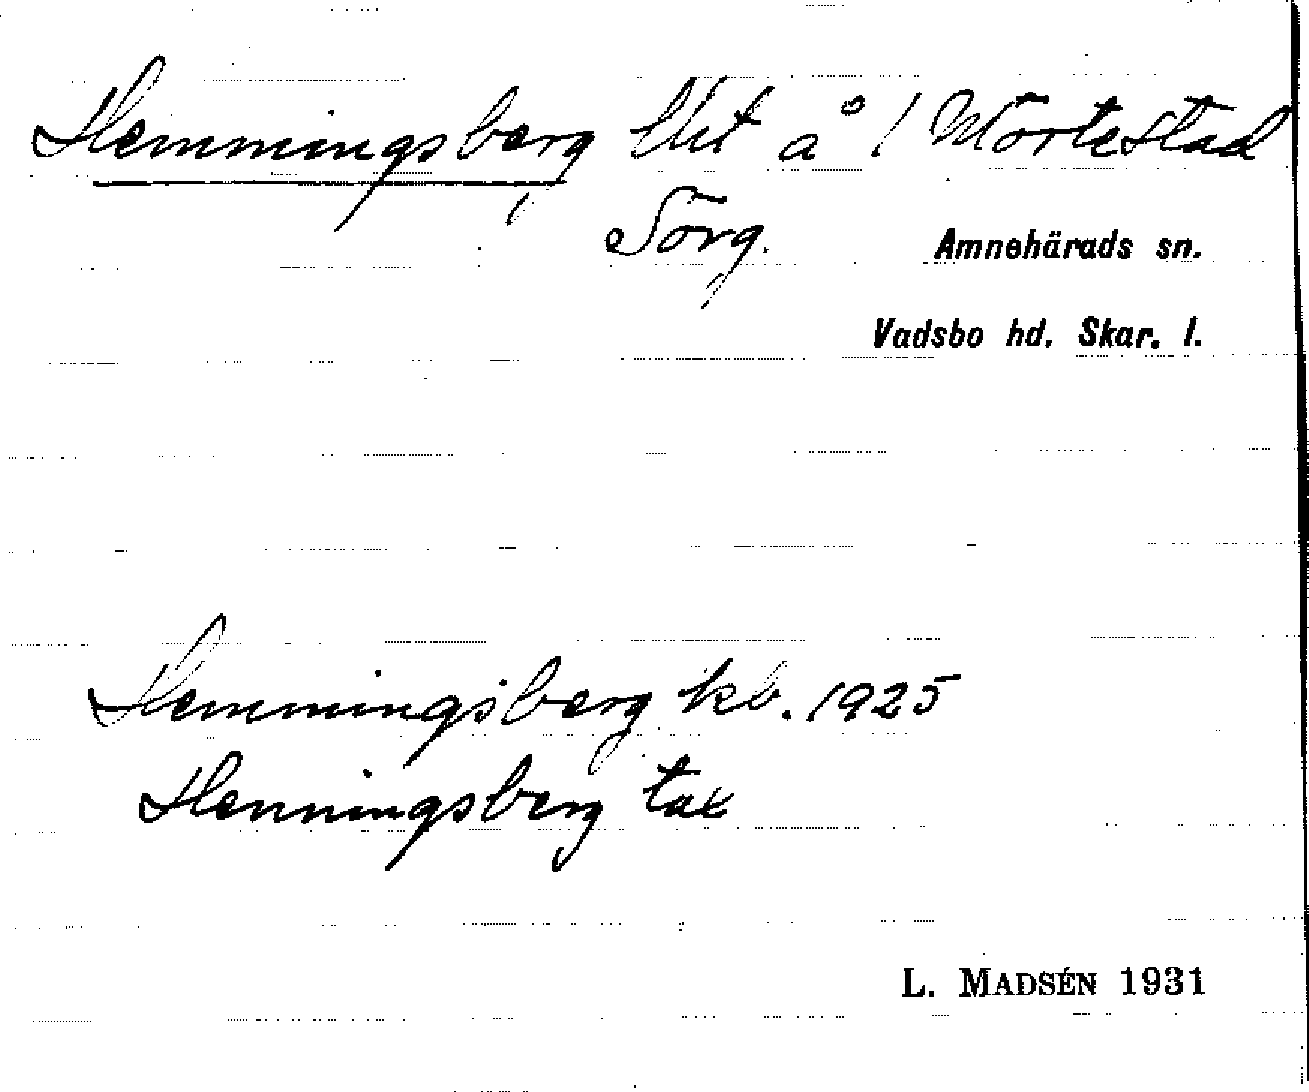 Hemmingsberg lht å 1 Mörtestad
Sörg.
Amnehärads sn.
Vadsbo hd. Skar. l.
Hemmingsberg kb. 1925
Henningsberg tax
L. MADSÉN 1931